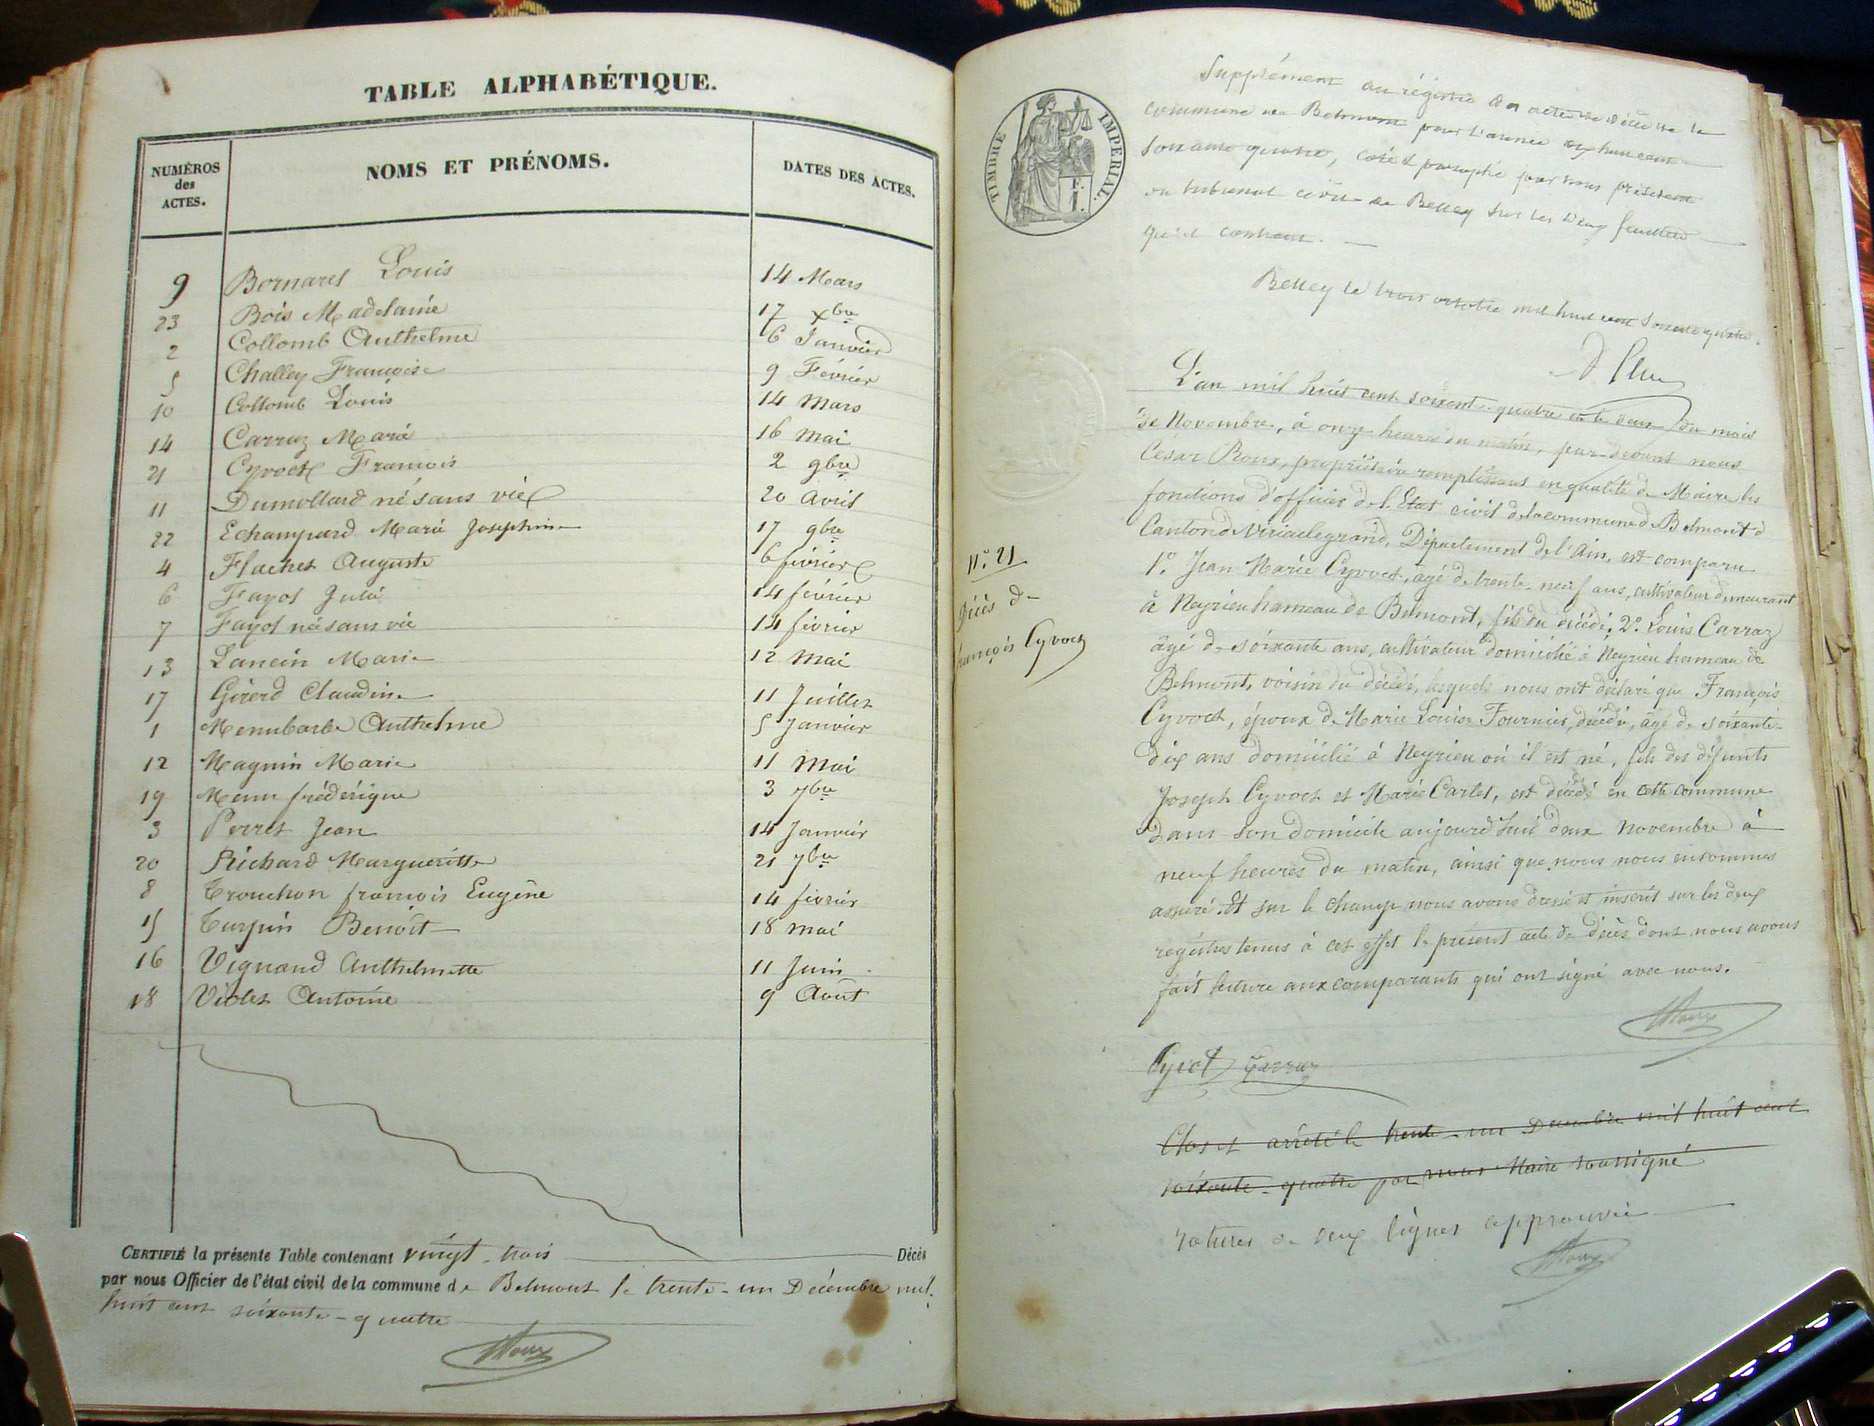 TABLE ALPHABÉTIQUE.
NUMÉROS des ACTES. NOMS ET PRÉNOMS. DATES DES ACTES.
9 Bornarel Louis 14 Mars
23 Bois Madelaine 17 xbre
2 Collomb Anthelme 6 Janvier
5 Challey Françoise 9 Février
10 Collomb Louis 14 Mars
14 Carraz Marie 16 Mai
21 Cyvoct François 2 9bre
11 Dumollard né sans vie 20 Avril
22 Echampard Marie Josephine 17 9bre
4 Flachet Auguste 6 février
6 Fayol Julie 14 février
7 Fayol né sans vie 14 février
13 Lancin Marie 12 Mai
17 Girerd Claudine 11 Juillet
1 Menubarbe Anthelme 5 Janvier
12 Magnin Marie 11 Mai
19 Menu frédérique 3 7bre
3 Perret Jean 14 Janvier
20 Richard Margueritte 21 7bre
8 Trouchon françois Eugène 14 février
15 Turpin Benoît 18 mai
16 Vignand Anthelmette 11 Juin
18 Violet Antoine 9 Août
CERTIFIÉ la présente Table contenant vingt-trois Décès
par nous Officier de l'état civil de la commune de Belmont le trente-un Décembre mil
huit cent soixante-quatre
Roux
TIMBRE IMPÉRIAL.
Supplément au régistre des actes de décès de la
commune de Belmont pour l'année mil huit cent
soixante quatre, coté et paraphé par nous président
au tribunal civil de Belley sur les deux feuillets
qu'il contient.
Belley le trois octobre mil huit cent soixante quatre.
L'an mil huit cent soixante-quatre et le deux du mois
de Novembre, à onze heures du matin, par-devant nous
César Roux, propriétaire remplissant en qualité de Maire les
fonctions d'officier de l'Etat civil de la commune de Belmont
Canton de Virieu le grand, Département de l'Ain, est comparu
N.° 21
Décès de
françois Cyvoct
1.° Jean Marie Cyvoct, agé de trente-neuf ans, cultivateur demeurant
à Neyrieu hameau de Belmont, fils du décédé, 2.° Louis Carraz
âgé de soixante ans, cultivateur domicilié à Neyrieu hameau de
Belmont, voisin du décédé, lesquels nous ont déclaré que François
Cyvoct, époux de Marie Louise Fournier, décédé, âgé de soixante-
dix ans domicilié à Neyrieu où il est né, fils des défunts
Joseph Cyvoct et Marie Carlet, est décédé en cette commune
dans son domicile aujourd'hui deux novembre à
neuf heures du matin, ainsi que nous nous en sommes
assuré. Et sur le champ nous avons dressé et inscrit sur les deux
registres tenus à cet effet le présent acte de décès dont nous avons
fait lecture aux comparants qui ont signé avec nous.
Roux
Cyvoct Carraz
Clos et arrêté le trente-un Décembre mil huit cent
soixante-quatre par nous Maire soussigné
ratures de deux lignes approuvée
Roux